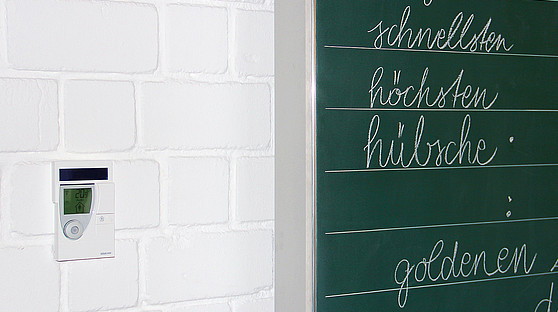 schnellsten
höchsten
hübsche .
:
goldenen